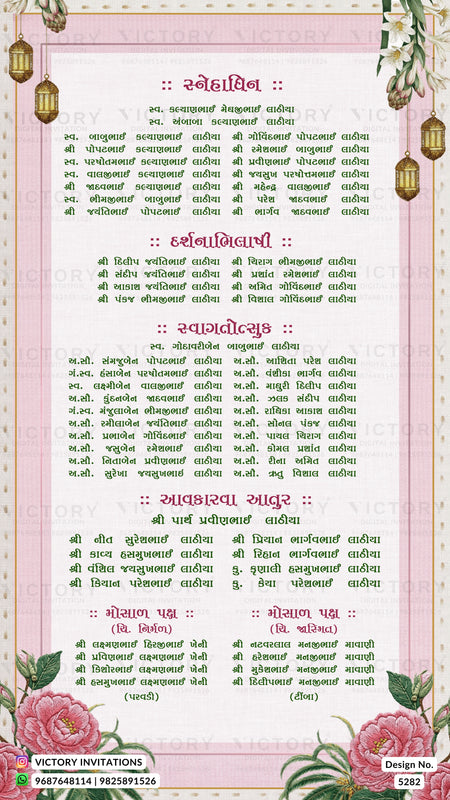 :: સ્નેહાધિન ::
સ્વ. કલ્યાણભાઈ મેઘજીભાઈ લાઠીયા
સ્વ. અંબાબા કલ્યાણભાઈ લાઠીયા
સ્વ. બાબુભાઈ કલ્યાણભાઈ લાઠીયા શ્રી ગોવિંદભાઈ પોપટભાઈ લાઠીયા
શ્રી પોપટભાઈ કલ્યાણભાઈ લાઠીયા શ્રી રમેશભાઈ બાબુભાઈ લાઠીયા
સ્વ. પરષોતમભાઈ કલ્યાણભાઈ લાઠીયા શ્રી પ્રવીણભાઈ પોપટભાઈ લાઠીયા
સ્વ. વાલજીભાઈ કલ્યાણભાઈ લાઠીયા શ્રી જયસુખ પરષોત્તમભાઈ લાઠીયા
શ્રી જાદવભાઈ કલ્યાણભાઈ લાઠીયા શ્રી મહેન્દ્ર વાલજીભાઈ લાઠીયા
સ્વ. ભીમજીભાઈ બાબુભાઈ લાઠીયા શ્રી પરેશ જાદવભાઈ લાઠીયા
શ્રી જયંતિભાઈ પોપટભાઈ લાઠીયા શ્રી ભાર્ગવ જાદવભાઈ લાઠીયા
:: દર્શનાભિલાષી ::
શ્રી દિલીપ જયંતિભાઈ લાઠીયા શ્રી ચિરાગ ભીમજીભાઈ લાઠીયા
શ્રી સંદીપ જયંતિભાઈ લાઠીયા શ્રી પ્રશાંત રમેશભાઈ લાઠીયા
શ્રી આકાશ જયંતિભાઈ લાઠીયા શ્રી અમિત ગોવિંદભાઈ લાઠીયા
શ્રી પંકજ ભીમજીભાઈ લાઠીયા શ્રી વિશાલ ગોવિંદભાઈ લાઠીયા
:: સ્વાગતોત્સુક ::
સ્વ. ગોદાવરીબેન બાબુભાઈ લાઠીયા
અ.સૌ. સમજુબેન પોપટભાઈ લાઠીયા અ.સૌ. આશિતા પરેશ લાઠીયા
ગં.સ્વ. હંસાબેન પરષોતમભાઈ લાઠીયા અ.સૌ. વંશીકા ભાર્ગવ લાઠીયા
સ્વ. લક્ષ્મીબેન વાલજીભાઈ લાઠીયા અ.સૌ. માધુરી દિલીપ લાઠીયા
અ.સૌ. કુંદનબેન જાદવભાઈ લાઠીયા અ.સૌ. ઝલક સંદીપ લાઠીયા
ગં.સ્વ. મંજુલાબેન ભીમજીભાઈ લાઠીયા અ.સૌ. રાધિકા આકાશ લાઠીયા
અ.સૌ. રમીલાબેન જયંતિભાઈ લાઠીયા અ.સૌ. સોનલ પંકજ લાઠીયા
અ.સૌ. પ્રભાબેન ગોવિંદભાઈ લાઠીયા અ.સૌ. પાયલ ચિરાગ લાઠીયા
અ.સૌ. જસુબેન રમેશભાઈ લાઠીયા અ.સૌ. કોમલ પ્રશાંત લાઠીયા
અ.સૌ. નિતાબેન પ્રવીણભાઈ લાઠીયા અ.સૌ. રીના અમિત લાઠીયા
અ.સૌ. સુરેખા જયસુખભાઈ લાઠીયા અ.સૌ. ઋતુ વિશાલ લાઠીયા
:: આવકારવા આતુર ::
શ્રી પાર્થ પ્રવીણભાઈ લાઠીયા
શ્રી નીત સુરેશભાઈ લાઠીયા શ્રી પ્રિયાન ભાર્ગવભાઈ લાઠીયા
શ્રી કાવ્ય હસમુખભાઈ લાઠીયા શ્રી રિહાન ભાર્ગવભાઈ લાઠીયા
શ્રી વંશિલ જયસુખભાઈ લાઠીયા કુ. કૃણાલી હસમુખભાઈ લાઠીયા
શ્રી કિયાન પરેશભાઈ લાઠીયા કુ. કેયા પરેશભાઈ લાઠીયા
:: મોસાળ પક્ષ :: :: મોસાળ પક્ષ ::
(ચિ. નિર્મળ) (ચિ. જાસ્મિત)
શ્રી લક્ષ્મણભાઈ હિરજીભાઈ ખેની શ્રી નટવરલાલ મનજીભાઈ માવાણી
શ્રી પ્રવિણભાઈ લક્ષ્મણભાઈ ખેની શ્રી હરેશભાઈ મનજીભાઈ માવાણી
શ્રી કિશોરભાઈ લક્ષ્મણભાઈ ખેની શ્રી મુકેશભાઈ મનજીભાઈ માવાણી
શ્રી હસમુખભાઈ લક્ષ્મણભાઈ ખેની શ્રી દિલીપભાઈ મનજીભાઈ માવાણી
(પરવડી) (ટીંબા)
VICTORY INVITATIONS
9687648114 | 9825891526
Design No.
5282